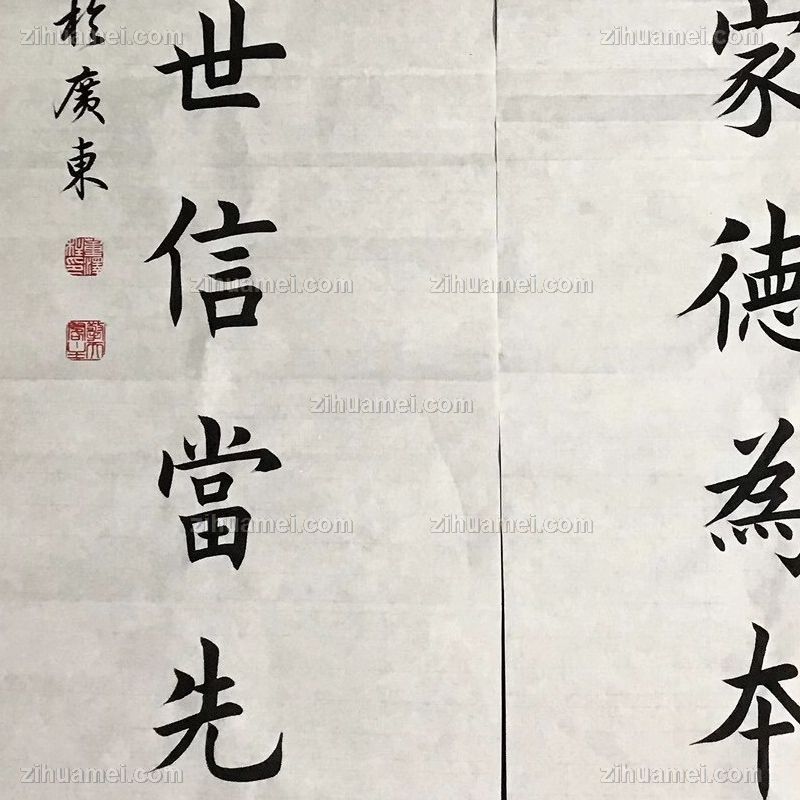 家德為本
世信當先
於廣東
zihuamei.com zihuamei.com
zihuamei.com zihuamei.com
zihuamei.com
zihuamei.com zihuamei.com
zihuamei.com zihuamei.com